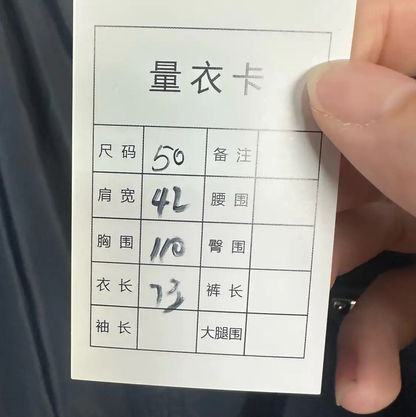 量衣卡
尺码 50 备注
肩宽 42 腰围
胸围 110 臀围
衣长 73 裤长
袖长 大腿围